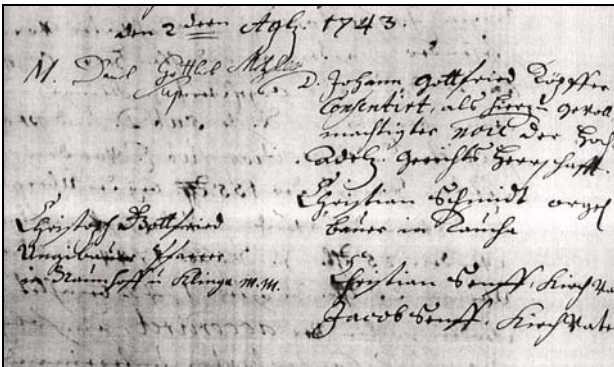 den 2 1743.
M. Gottlieb
D. Johann Gottfried Töpffer
Consentirt, als hierzu gevoll
mächtigter noīe der Hoch
Adelʒ. Gerichts Herrschafft.
Christian Schmidt orgel
bauer in Taucha
Christoph Gottfried
Ungibauer Pfarrer
in Naumhoff u Klinga m.m.
Christian Senff, Kirch Va
Jacob Senff, Kirch Vate